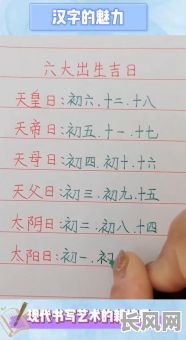 汉字的魅力
六大出生吉日
天皇日:初六.十二.十八
天帝日:初五.十一.十七
天母日:初四.初十.十六
天父日:初三.初九.十五
太阴日:初二.初八.十四
太阳日:初一.初
现代书写艺术的
长风网